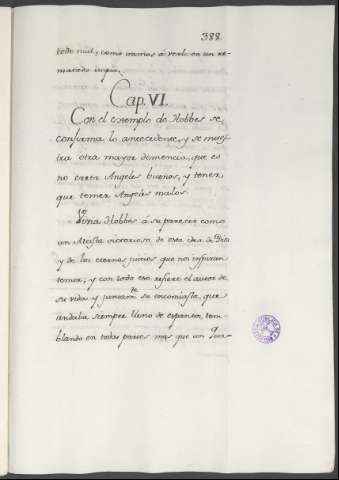 388.
todo mal, como vamos á verlo en un re-
matado impío.
Cap. VI.
Con el exemplo de Hobbes se
confirma lo antecedente, y se mues-
tra otra mayor demencia, que es
no creer Angeles buenos, y tener
que temer Angeles malos.
Hobbes á su parecer como
un Ateista victorioso de esta idea de Dios
y de los eternos juicios que nos infunden
temor; y con todo eso refiere el autor de
su vida y juntam.te su encomiasta, que
andaba siempre lleno de espantos, tem-
blando en todas partes mas que un